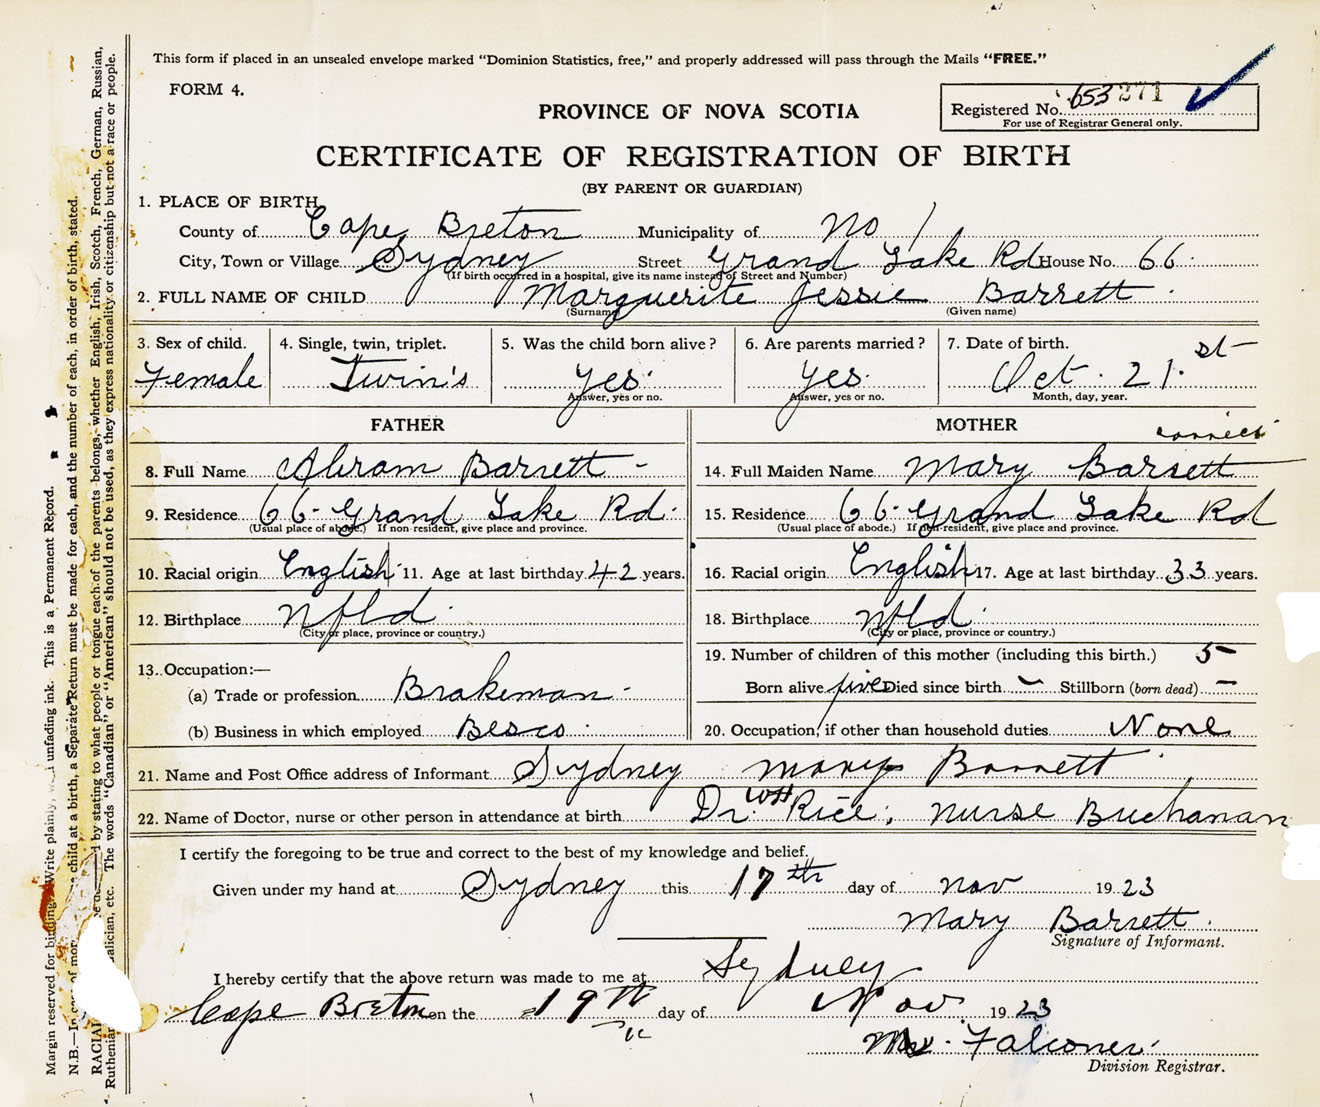 This form if placed in an unsealed envelope marked "Dominion Statistics, free," and properly addressed will pass through the Mails "FREE."
FORM 4.
Registered No. 653271
For use of Registrar General only.
PROVINCE OF NOVA SCOTIA
CERTIFICATE OF REGISTRATION OF BIRTH
(BY PARENT OR GUARDIAN)
1. PLACE OF BIRTH
County of Cape Breton Municipality of No 1
City, Town or Village Sydney Street Grand Lake Rd House No. 66
(If birth occurred in a hospital, give its name instead of Street and Number)
2. FULL NAME OF CHILD Marguerite Jessie Barrett
(Surname) (Given name)
3. Sex of child. 4. Single, twin, triplet. 5. Was the child born alive? 6. Are parents married? 7. Date of birth.
Female Twin's yes. yes. Oct. 21.st
Answer, yes or no. Answer, yes or no. Month, day, year.
FATHER MOTHER
correct
8. Full Name Abram Barrett - 14. Full Maiden Name Mary Barrett
9. Residence 66 - Grand Lake Rd. 15. Residence 66 - Grand Lake Rd
(Usual place of abode.) If non-resident, give place and province. (Usual place of abode.) If non-resident, give place and province.
10. Racial origin English 11. Age at last birthday 42 years. 16. Racial origin English 17. Age at last birthday 33 years.
12. Birthplace Nfld. 18. Birthplace Nfld.
(City or place, province or country.) (City or place, province or country.)
13. Occupation:— 19. Number of children of this mother (including this birth.) 5
(a) Trade or profession Brakeman - Born alive five Died since birth - Stillborn (born dead) -
(b) Business in which employed Besco. 20. Occupation, if other than household duties None
21. Name and Post Office address of Informant Sydney Mary Barrett
22. Name of Doctor, nurse or other person in attendance at birth Dr. WH Rice; Nurse Buchanan
I certify the foregoing to be true and correct to the best of my knowledge and belief.
Given under my hand at Sydney this 17th day of Nov 1923
Mary Barrett.
Signature of Informant.
I hereby certify that the above return was made to me at Sydney
Cape Breton on the 19th day of Nov 1923
Falconer.
Division Registrar.
Margin reserved for binding. Write plainly, unfading ink. This is a Permanent Record.
N.B.—In case of mor child at a birth, a Separate Return must be made for each, and the number of each, in order of birth, stated.
RACIAL by stating to what people or tongue each of the parents belongs, whether English, Irish, Scotch, French, German, Russian,
Ruthenian, alician, etc. The words "Canadian" or "American" should not be used, as they express nationality or citizenship but not a race or people.